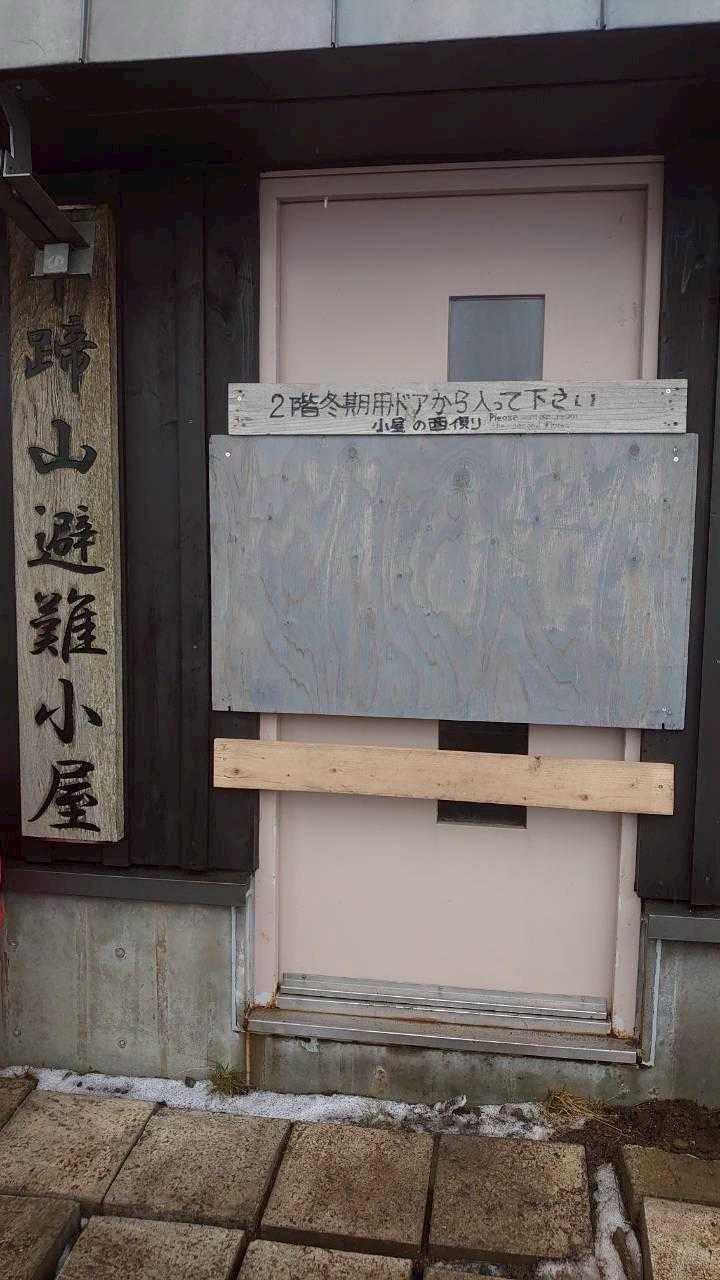 蹄山避難小屋
2階冬期用ドアから入って下さい
小屋の西側
Please
the second floor